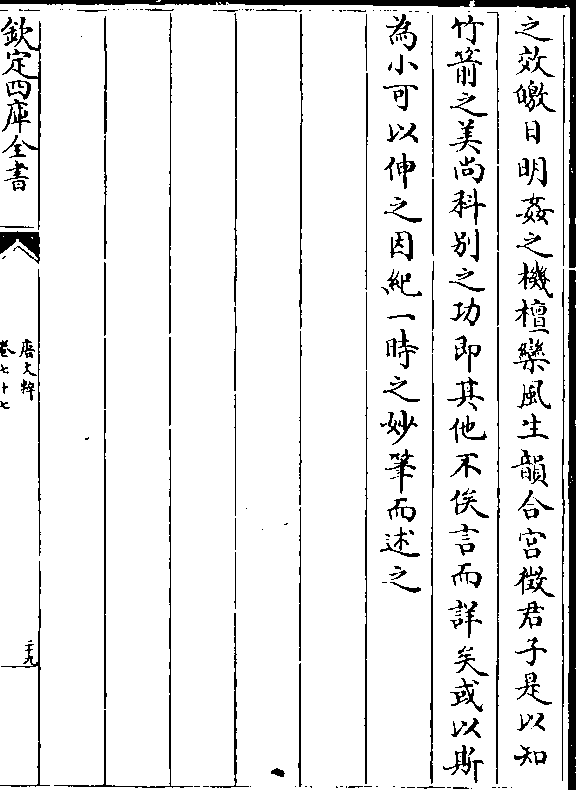 之效皦日明姦之機檀欒風生韻合宮徵君子是以知
竹箭之美尚科別之功即其他不俟言而詳矣或以斯
為小可以伸之因紀一時之妙筆而述之
欽定四庫全書
唐文粹
卷七十七
二十九